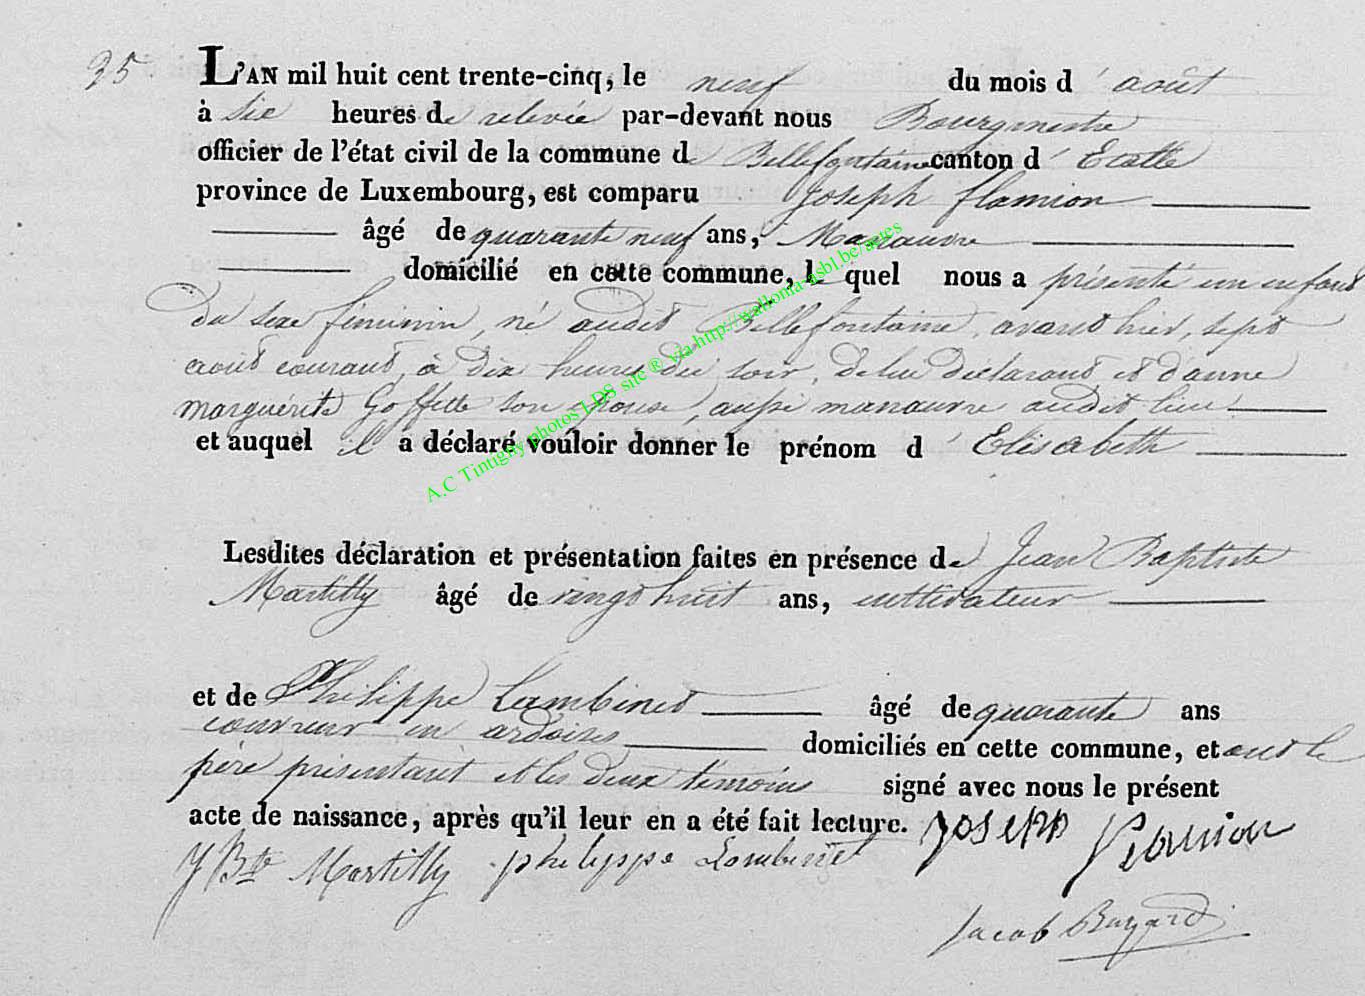 35
L'AN mil huit cent trente-cinq, le neuf du mois d'août
à six heures de relevée par-devant nous Bourgmestre
officier de l'état civil de la commune de Bellefontaine canton d'Etalle
province de Luxembourg, est comparu Joseph flamion
âgé de quarante neuf ans, Manœuvre
domicilié en cette commune, lequel nous a présenté un enfant
du sexe féminin, né audit Bellefontaine, avant hier, sept
août courant, à dix heures du soir, de lui déclarant et d'anne
marguérite Goffette son épouse, aussi manœuvre audit lieu
et auquel il a déclaré vouloir donner le prénom d'Elisabeth
Lesdites déclaration et présentation faites en présence de Jean Baptiste
Martilly âgé de vingt huit ans, cultivateur
et de Philippe Lambinet âgé de quarante ans
couvreur en ardoises domiciliés en cette commune, et ont le
père présentant et les deux témoins signé avec nous le présent
acte de naissance, après qu'il leur en a été fait lecture. Joseph flamion
J Bte Martilly philippe Lambinet
Jacob Buzard
A.C Tintigny photos LDS site ® via http://wallonia-asbl.be/actes